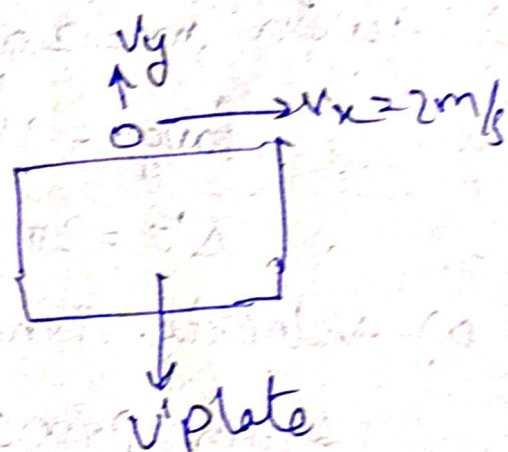 Vy
Vx=2m/s
V'plate